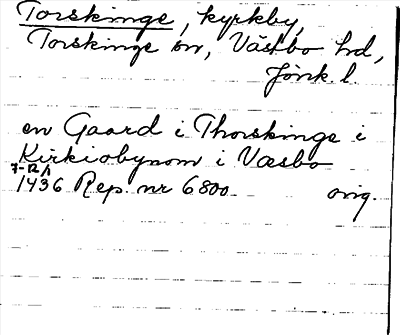 Torskinge, kyrkby,
Torskinge sn, Västbo hd,
Jönk. l.
en Gaard i Thorskinge i
Kirkiobynom i Væsbo
7-12/1
1436 Rep. nr 6800 orig.